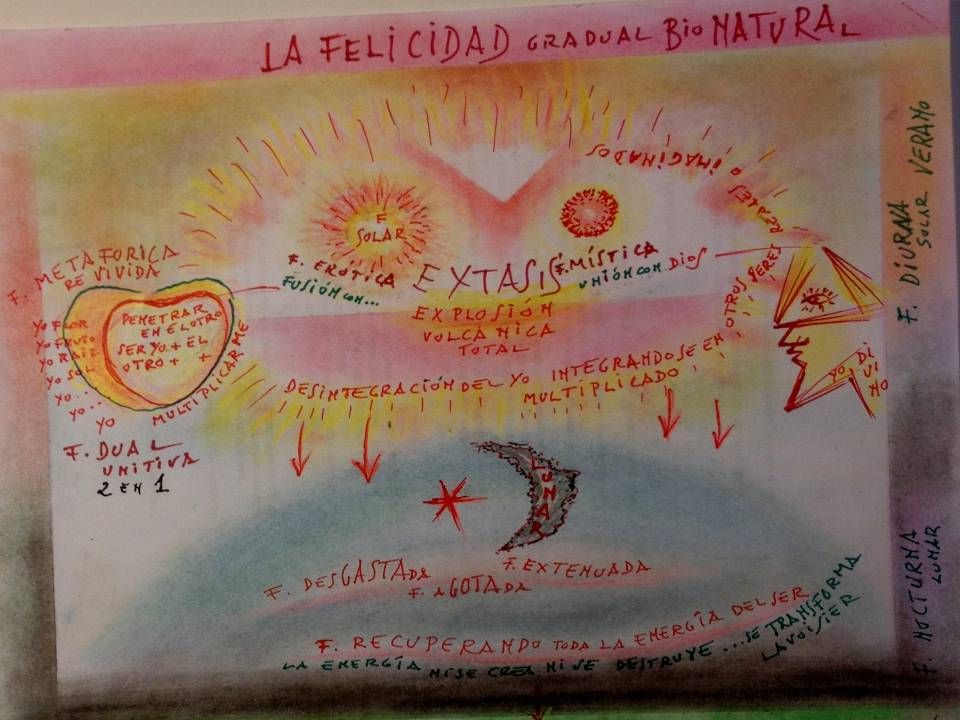 LA FELICIDAD GRADUAL BIO NATURAL
F. SOLAR
F. ERÓTICA
FUSIÓN CON...
EXTASIS
F. MÍSTICA
UNIÓN CON DIOS
EXPLOSIÓN
VOLCÁNICA
TOTAL
DESINTEGRACIÓN DEL YO INTEGRANDOSE EN OTROS SERES REALES O IMAGINADOS
MULTIPLICADO
F. METAFORICA
RE VIVIDA
YO FLOR
YO FRUTO
YO RAIZ
YO SOL
YO...
YO..
YO
PENETRAR
EN EL OTRO
SER YO + EL
OTRO + +
MULTIPLICARME
F. DUAL
UNITIVA
2 EN 1
YO DIVINO
LUNAR
F. DESGASTADA
F. AGOTADA
F. EXTENUADA
F. RECUPERANDO TODA LA ENERGÍA DEL SER
LA ENERGÍA NI SE CREA NI SE DESTRUYE ... SE TRANSFORMA
LAVOISIER
F. DIURNA
SOLAR VERANO
F. NOCTURNA
LUNAR